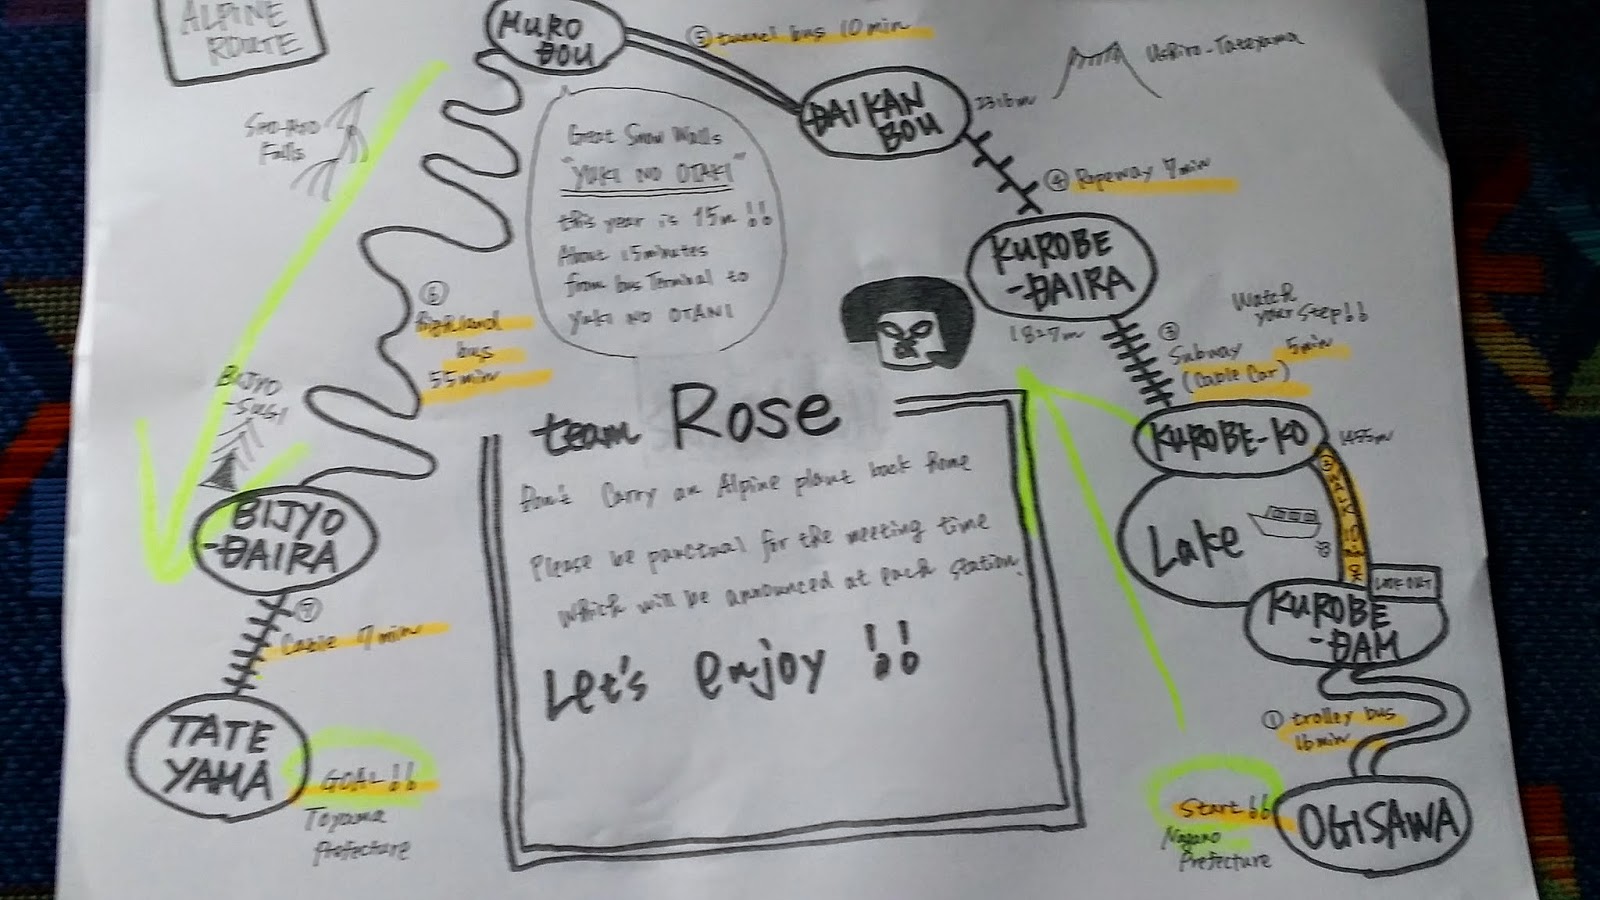 ALPINE
ROUTE
MURO
DOU
⑤ tunnel bus 10min
Ushiro-Tateyama
DAIKAN
BOU
2316m
SHO-MYO
Falls
Great Snow Walls
"YUKI NO OTAKI"
this year is 15m!!
About 15minutes
from bus Terminal to
YUKI NO OTANI
④ Ropeway 7min
KUROBE
-DAIRA
1827m
Watch
your step!!
③
Subway 5min
(Cable Car)
⑥
Highland
bus
55min
BIJYO
-SUGI
BIJYO
-DAIRA
⑦
Cable 7min
TATE
YAMA
GOAL!!
Toyama
Prefecture
team Rose
Don't Carry an Alpine plant back home
Please be punctual for the meeting time
which will be announced at each station.
Let's enjoy!!
KUROBE-KO
1455m
② walk 10min
Lake
KUROBE
-DAM
① trolley bus
16min
Start!!
OGISAWA
Nagano
Prefecture